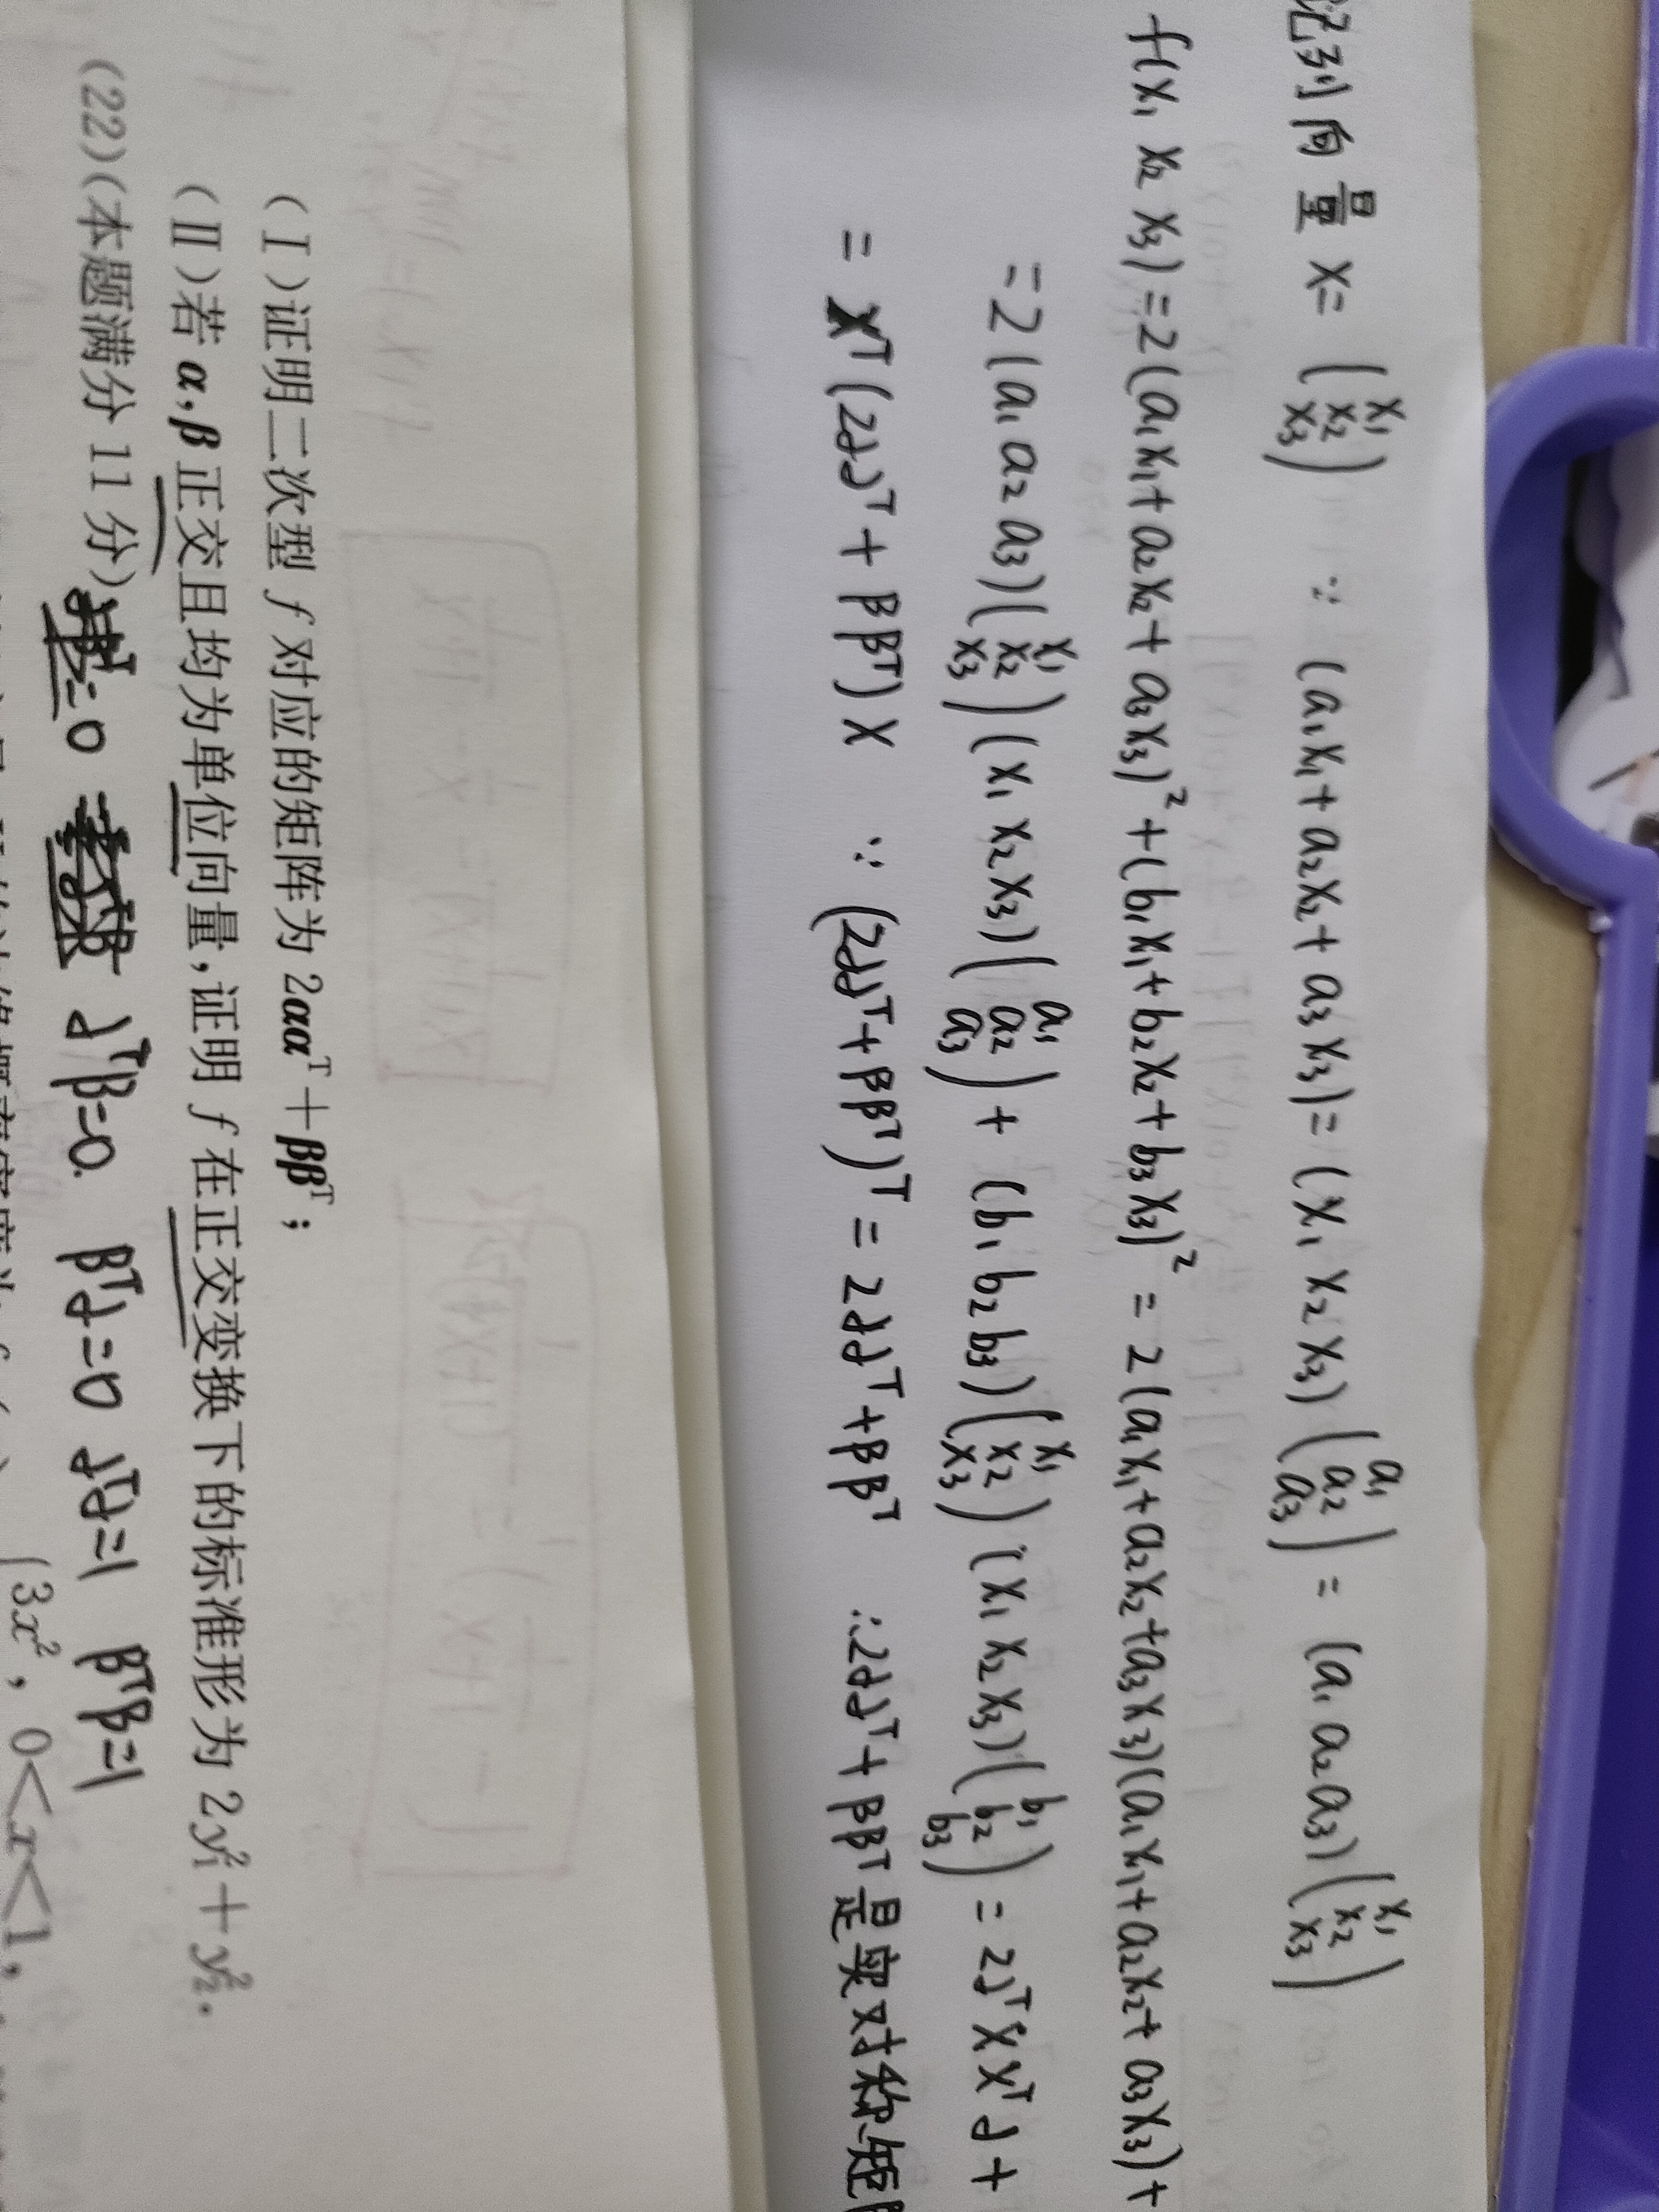 记列向量 X= (x₁ x₂ x₃) ∵ (a₁x₁+a₂x₂+a₃x₃)=(x₁ x₂ x₃)(a₁ a₂ a₃) = (a₁ a₂ a₃)(x₁ x₂ x₃)
f(x₁ x₂ x₃)=2(a₁x₁+a₂x₂+a₃x₃)²+(b₁x₁+b₂x₂+b₃x₃)² = 2(a₁x₁+a₂x₂+a₃x₃)(a₁x₁+a₂x₂+a₃x₃)+
=2(a₁ a₂ a₃)(x₁ x₂ x₃)(x₁ x₂ x₃)(a₁ a₂ a₃)+(b₁ b₂ b₃)(x₁ x₂ x₃)(x₁ x₂ x₃)(b₁ b₂ b₃) = 2αᵀXXᵀα+
= Xᵀ(2ααᵀ+ββᵀ)X ∵ (2ααᵀ+ββᵀ)ᵀ = 2ααᵀ+ββᵀ ∴2ααᵀ+ββᵀ是实对称矩
(Ⅰ)证明二次型 f 对应的矩阵为 2ααᵀ+ββᵀ;
(Ⅱ)若 α,β 正交且均为单位向量,证明 f 在正交变换下的标准形为 2y₁²+y₂².
(22)(本题满分 11 分)
=0 αᵀβ=0. βᵀα=0 αᵀα=1 βᵀβ=1
3x², 0<x<1,